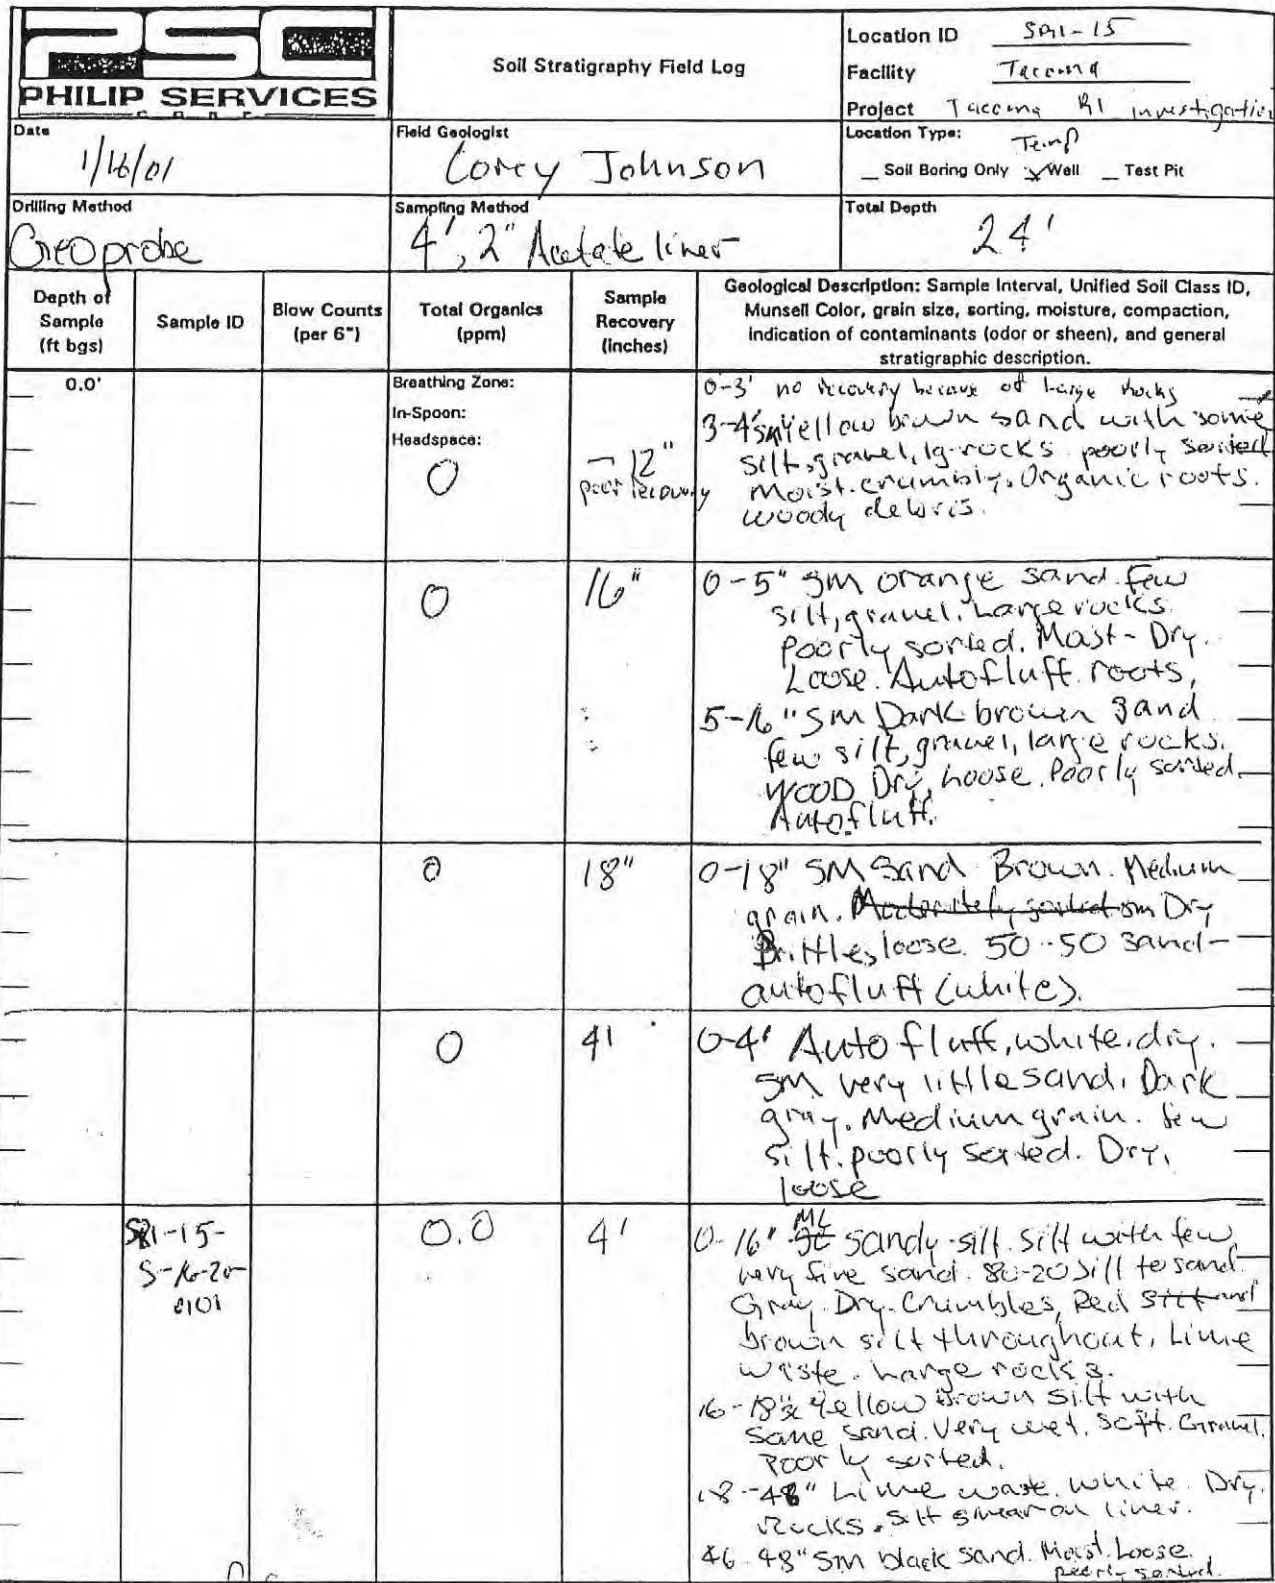 PSC
PHILIP SERVICES
C O R P.
Soil Stratigraphy Field Log
Location ID SRI-15
Facility Tacoma
Project Tacoma RI investigation
Date
1/16/01
Field Geologist
Corey Johnson
Location Type: Temp
_ Soil Boring Only x Well _ Test Pit
Drilling Method
Geoprobe
Sampling Method
4', 2" Acetate liner
Total Depth
24'
Depth of Sample (ft bgs)
Sample ID
Blow Counts (per 6")
Total Organics (ppm)
Sample Recovery (inches)
Geological Description: Sample Interval, Unified Soil Class ID,
Munsell Color, grain size, sorting, moisture, compaction,
indication of contaminants (odor or sheen), and general
stratigraphic description.
0.0'
Breathing Zone:
In-Spoon:
Headspace:
0
~12"
poor recovery
0-3' no recovery because of large rocks
3-4' SM Yellow brown sand with some
silt, gravel, lg rocks poorly sorted
Moist. crumbly. Organic roots.
woody debris.
0
16"
0-5" SM orange sand. few
silt, gravel. Large rocks.
Poorly sorted. Moist-Dry.
Loose. Autofluff. roots,
5-16" SM Dark brown sand
few silt, gravel, large rocks.
WOOD Dry, Loose. Poorly sorted.
Autofluff.
0
18"
0-18" SM Sand Brown. Medium
grain. Moderately sorted SM Dry
Brittle, loose. 50-50 sand-
autofluff (white).
0
4'
0-4' Auto fluff, white, dry.
SM very little sand. Dark
gray. Medium grain. few
silt. poorly sorted. Dry,
loose
SRI-15-
S-16-20-
0101
0.0
4'
0-16" ML sandy-silt. silt with few
very fine sand. 80-20 silt to sand.
Gray. Dry. Crumbles, Red silt and
brown silt throughout. Lime
waste. Large rocks.
16-18" Yellow Brown silt with
some sand. Very wet. Soft. Gravel.
Poorly sorted.
18-48" Lime waste. White. Dry.
Rocks. silt smear on liner.
46-48" SM black sand. Moist. Loose.
poorly sorted.